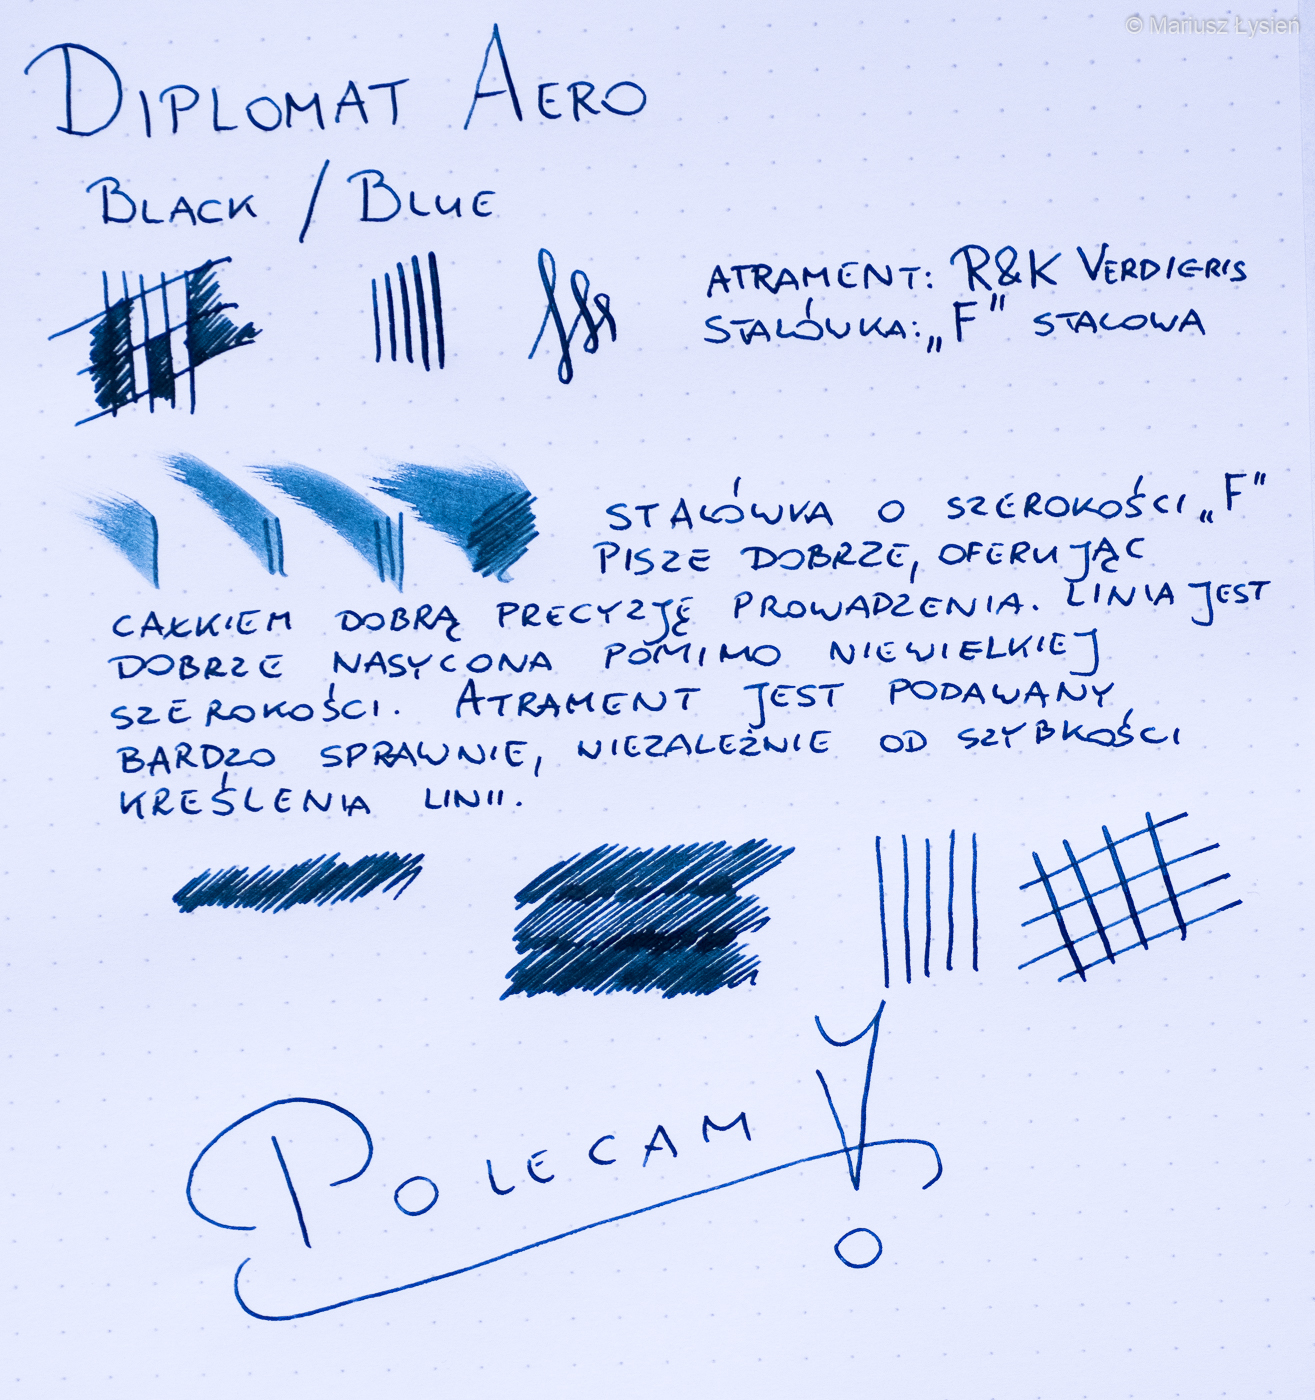 © Mariusz Łysień
DIPLOMAT AERO
BLACK / BLUE
ATRAMENT: R&K VERDIGRIS
STALÓWKA: „F” STALOWA
STALÓWKA O SZEROKOŚCI „F”
PISZE DOBRZE, OFERUJĄC
CAŁKIEM DOBRĄ PRECYZJĘ PROWADZENIA. LINIA JEST
DOBRZE NASYCONA POMIMO NIEWIELKIEJ
SZEROKOŚCI. ATRAMENT JEST PODAWANY
BARDZO SPRAWNIE, NIEZALEŻNIE OD SZYBKOŚCI
KREŚLENIA LINII.
POLECAM!